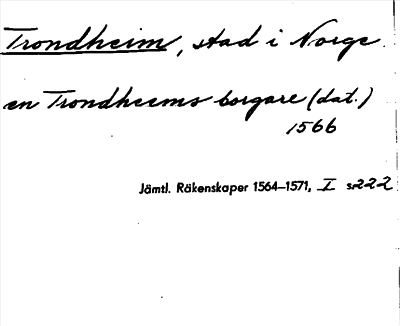 Trondheim, stad i Norge.
en Trondheems borgare (dat.)
1566
Jämtl. Räkenskaper 1564–1571, I s. 222